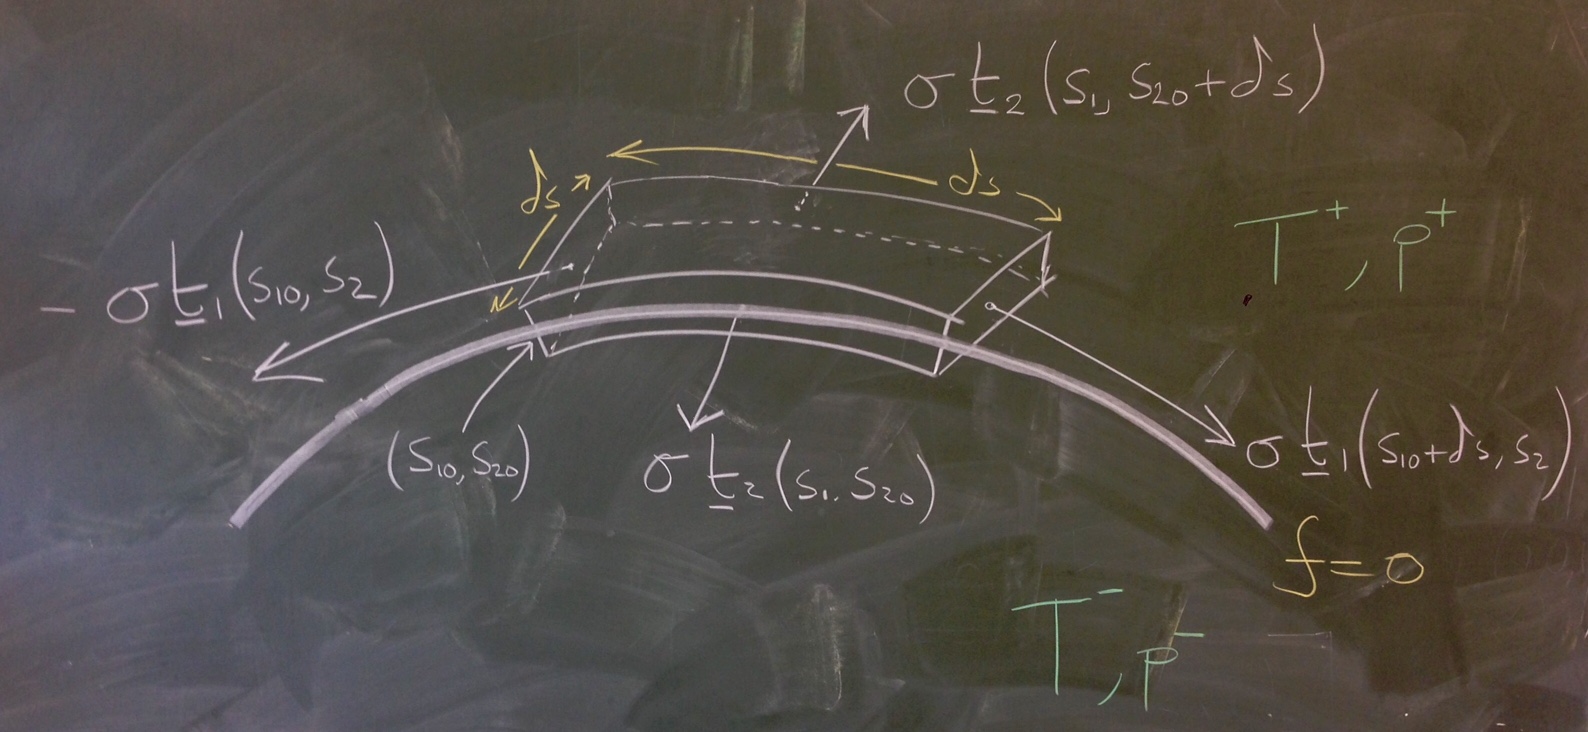 σ t₂ (s₁, s₂₀+ds)
ds
ds
T⁺, p⁺
- σ t₁ (s₁₀, s₂)
(s₁₀, s₂₀)
σ t₂ (s₁, s₂₀)
σ t₁ (s₁₀+ds, s₂)
f=0
T⁻, p⁻